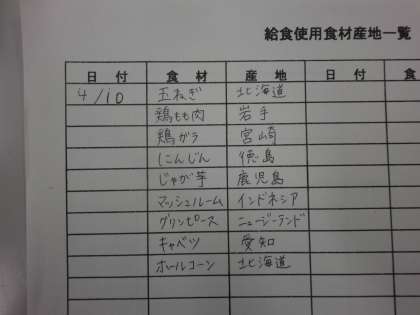 給食使用食材産地一覧
日付 食材 産地 日付 食
4/10 玉ねぎ 北海道
鶏もも肉 岩手
鶏ガラ 宮崎
にんじん 徳島
じゃが芋 鹿児島
マッシュルーム インドネシア
グリンピース ニュージーランド
キャベツ 愛知
ホールコーン 北海道